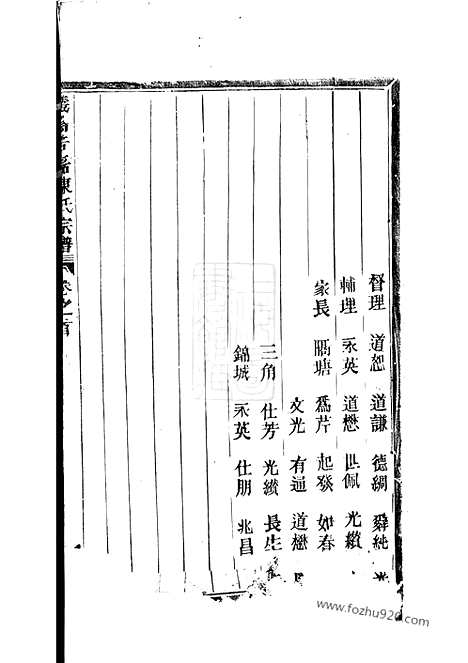 督理 道恕 道謙 德綢 舜純
輔理 永英 道懋 世佩 光纘
家長 鴈塘 爲芹 起發 如春
文光 有通 道懋
三角 仕芳 光纘 長生
錦城 永英 仕朋 兆昌
陳氏宗譜 卷之首
www.fozhu920.com